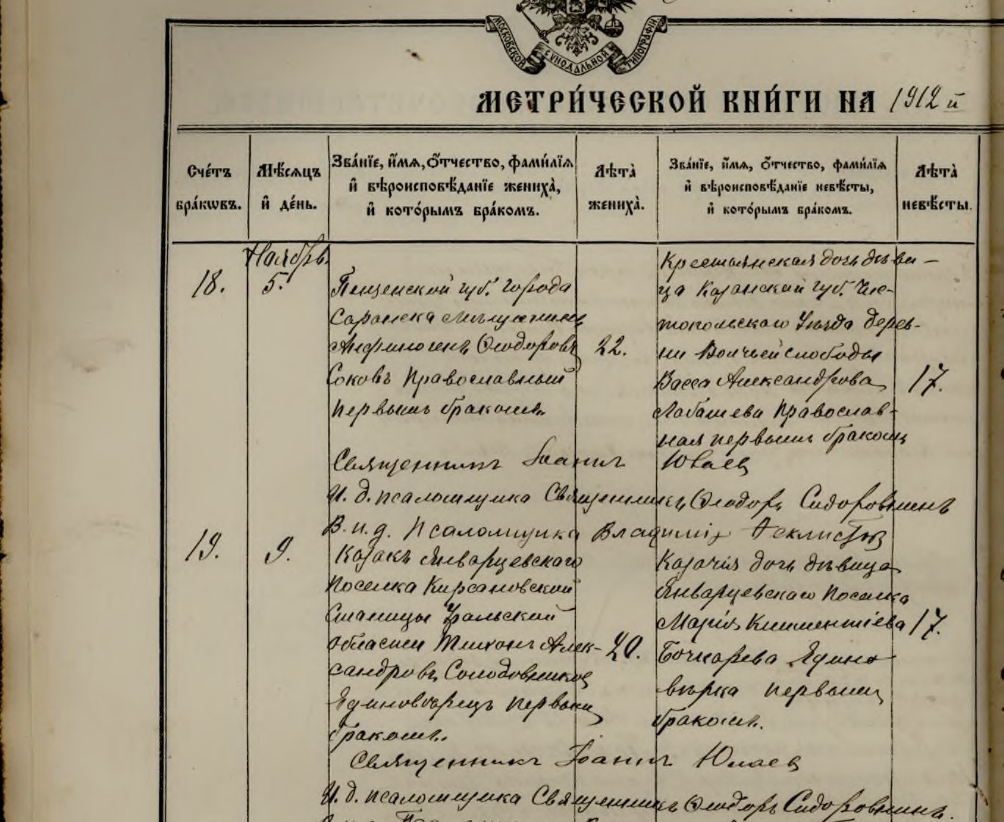 МОСКОВСКОЙ СѴНОДАЛЬНОЙ ТИПОГРАФІИ
МЕТРИ́ЧЕСКОЙ КНИ́ГИ НА 1912 й
Сче́тъ бра́кѡвъ.
Мѣ́сѧцъ и҆ де́нь.
Зва́нїе, и҆́мѧ, ѻ҆́тчество, фами́лїѧ
и҆ вѣроисповѣ́данїе жениха̀,
и҆ кото́рымъ бра́комъ.
Лѣ́та̀ жениха̀.
Зва́нїе, и҆́мѧ, ѻ҆́тчество, фами́лїѧ
и҆ вѣроисповѣ́данїе невѣ́сты,
и҆ кото́рымъ бра́комъ.
Лѣ́та̀ невѣ́сты.
18.
Ноябрь
5.
Пензенской губ. города
Саранска мѣщанинъ
Анфиногенъ Ѳеодоровъ
Соковъ Православный
первымъ бракомъ.
22.
Крестьянская дочь дѣви-
ца Казанской губ. Чис-
топольскаго Уѣзда дерев-
ни Волчьей слободы
Васса Александрова
Лабашева Православ-
ная первымъ бракомъ
17.
Священникъ Іоаннъ Юлаев
И. д. псаломщика Священникъ Ѳеодоръ Сидоровнинъ
В. и. д. Псаломщика Владиміръ Феклистов
19.
9.
Казакъ Январцевскаго
Поселка Кирсановской
Станицы Уральской
области Тихонъ Алек-
сандровъ Солодовников
Единовѣрецъ первым
бракомъ.
20.
Казачья дочь дѣвица
Январцевскаго Поселка
Марія Климентіева
Бочкарева Едино
вѣрка первымъ
бракомъ.
17.
Священникъ Іоаннъ Юлаев
И. д. псаломщика Священникъ Ѳеодоръ Сидоровнинъ.